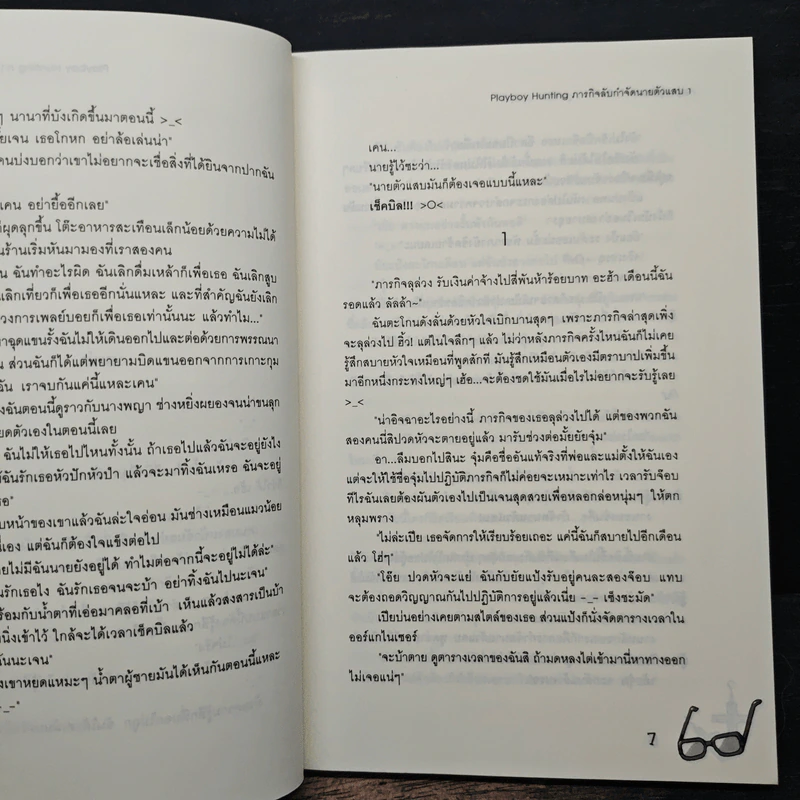 ๆ นานาที่บังเกิดขึ้นมาตอนนี้ >_<
ยเจน เธอโกหก อย่าล้อเล่นน่า"
คนบ่งบอกว่าเขาไม่อยากจะเชื่อสิ่งที่ได้ยินจากปากฉัน
เคน อย่ายื้ออีกเลย"
ผุดลุกขึ้น โต๊ะอาหารสะเทือนเล็กน้อยด้วยความไม่ได้
นร้านเริ่มหันมามองที่เราสองคน
น ฉันทำอะไรผิด ฉันเลิกดื่มเหล้าก็เพื่อเธอ ฉันเลิกสูบ
เลิกเที่ยวก็เพื่อเธออีกนั่นแหละ และที่สำคัญฉันยังเลิก
วงการเพลย์บอยก็เพื่อเธอเท่านั้นนะ แล้วทำไม..."
าฉุดแขนรั้งฉันไม่ให้เดินออกไปและต่อด้วยการพรรณนา
น ส่วนฉันก็ได้แต่พยายามบิดแขนออกจากการเกาะกุม
ฉัน เราจบกันแค่นี้แหละเคน"
งฉันตอนนี้ดูราวกับนางพญา ช่างหยิ่งผยองจนน่าขนลุก
ยดตัวเองในตอนนี้เลย
ฉันไม่ให้เธอไปไหนทั้งนั้น ถ้าเธอไปแล้วฉันจะอยู่ยังไง
ฉันรักเธอหัวปักหัวปำ แล้วจะมาทิ้งฉันเหรอ ฉันจะอยู่
ธอ"
บหน้าของเขาแล้วฉันล่ะใจอ่อน มันช่างเหมือนแมวน้อย
นี่เอง แต่ฉันก็ต้องใจแข็งต่อไป
ยไม่มีฉันนายยังอยู่ได้ ทำไมต่อจากนี้จะอยู่ไม่ได้ล่ะ"
นรักเธอไง ฉันรักเธอจนจะบ้า อย่าทิ้งฉันไปนะเจน"
ร้อมกับน้ำตาที่เอ่อมาคลอที่เบ้า เห็นแล้วสงสารเป็นบ้า
นิ่งเข้าไว้ ใกล้จะได้เวลาเช็คบิลแล้ว
ฉันนะเจน"
งเขาหยดแหมะๆ น้ำตาผู้ชายมันได้เห็นกันตอนนี้แหละ
-_-*
Playboy Hunting ภารกิจลับกำจัดนายตัวแสบ 1
เคน...
นายรู้ไว้ซะว่า...
"นายตัวแสบมันก็ต้องเจอแบบนี้แหละ"
เช็คบิล!!! >O<
1
"ภารกิจลุล่วง รับเงินค่าจ้างไปสี่พันห้าร้อยบาท อะฮ้า เดือนนี้ฉัน
รอดแล้ว ลัลล้า~"
ฉันตะโกนดังลั่นด้วยหัวใจเบิกบานสุดๆ เพราะภารกิจล่าสุดเพิ่ง
จะลุล่วงไป ฮิ้ว! แต่ในใจลึกๆ แล้ว ไม่ว่าหลังภารกิจครั้งไหนฉันก็ไม่เคย
รู้สึกสบายหัวใจเหมือนที่พูดสักที มันรู้สึกเหมือนตัวเองมีตราบาปเพิ่มขึ้น
มาอีกหนึ่งกระทงใหญ่ๆ เฮ้อ...จะต้องชดใช้มันเมื่อไรไม่อยากจะรับรู้เลย
>_<
"น่าอิจฉาอะไรอย่างนี้ ภารกิจของเธอลุล่วงไปได้ แต่ของพวกฉัน
สองคนนี่สิปวดหัวจะตายอยู่แล้ว มารับช่วงต่อมั้ยยัยจุ๋ม"
อา...ลืมบอกไปสินะ จุ๋มคือชื่ออันแท้จริงที่พ่อและแม่ตั้งให้ฉันเอง
แต่จะให้ใช้ชื่อจุ๋มไปปฏิบัติภารกิจก็ไม่ค่อยจะเหมาะเท่าไร เวลารับจ๊อบ
ทีไรฉันเลยต้องผันตัวเองไปเป็นเจนสุดสวยเพื่อหลอกล่อหนุ่มๆ ให้ตก
หลุมพราง
"ไม่ล่ะเปีย เธอจัดการให้เรียบร้อยเถอะ แค่นี้ฉันก็สบายไปอีกเดือน
แล้ว โฮ่ๆ"
"โอ๊ย ปวดหัวจะแย่ ฉันกับยัยแป้งรับอยู่คนละสองจ๊อบ แทบ
จะต้องถอดวิญญาณกันไปปฏิบัติการอยู่แล้วเนี่ย -_- เซ็งชะมัด"
เปียบ่นอย่างเคยตามสไตล์ของเธอ ส่วนแป้งก็นั่งจัดตารางเวลาใน
ออร์แกไนเซอร์
"จะบ้าตาย ดูตารางเวลาของฉันสิ ถ้ามดหลงไต่เข้ามานี่หาทางออก
ไม่เจอแน่ๆ"
7